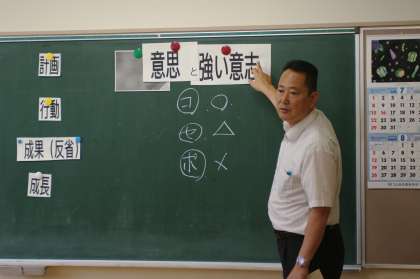 計画
行動
成果（反省）
成長
意思と強い意志
ヨ ○
セ △
ボ ×
7
8